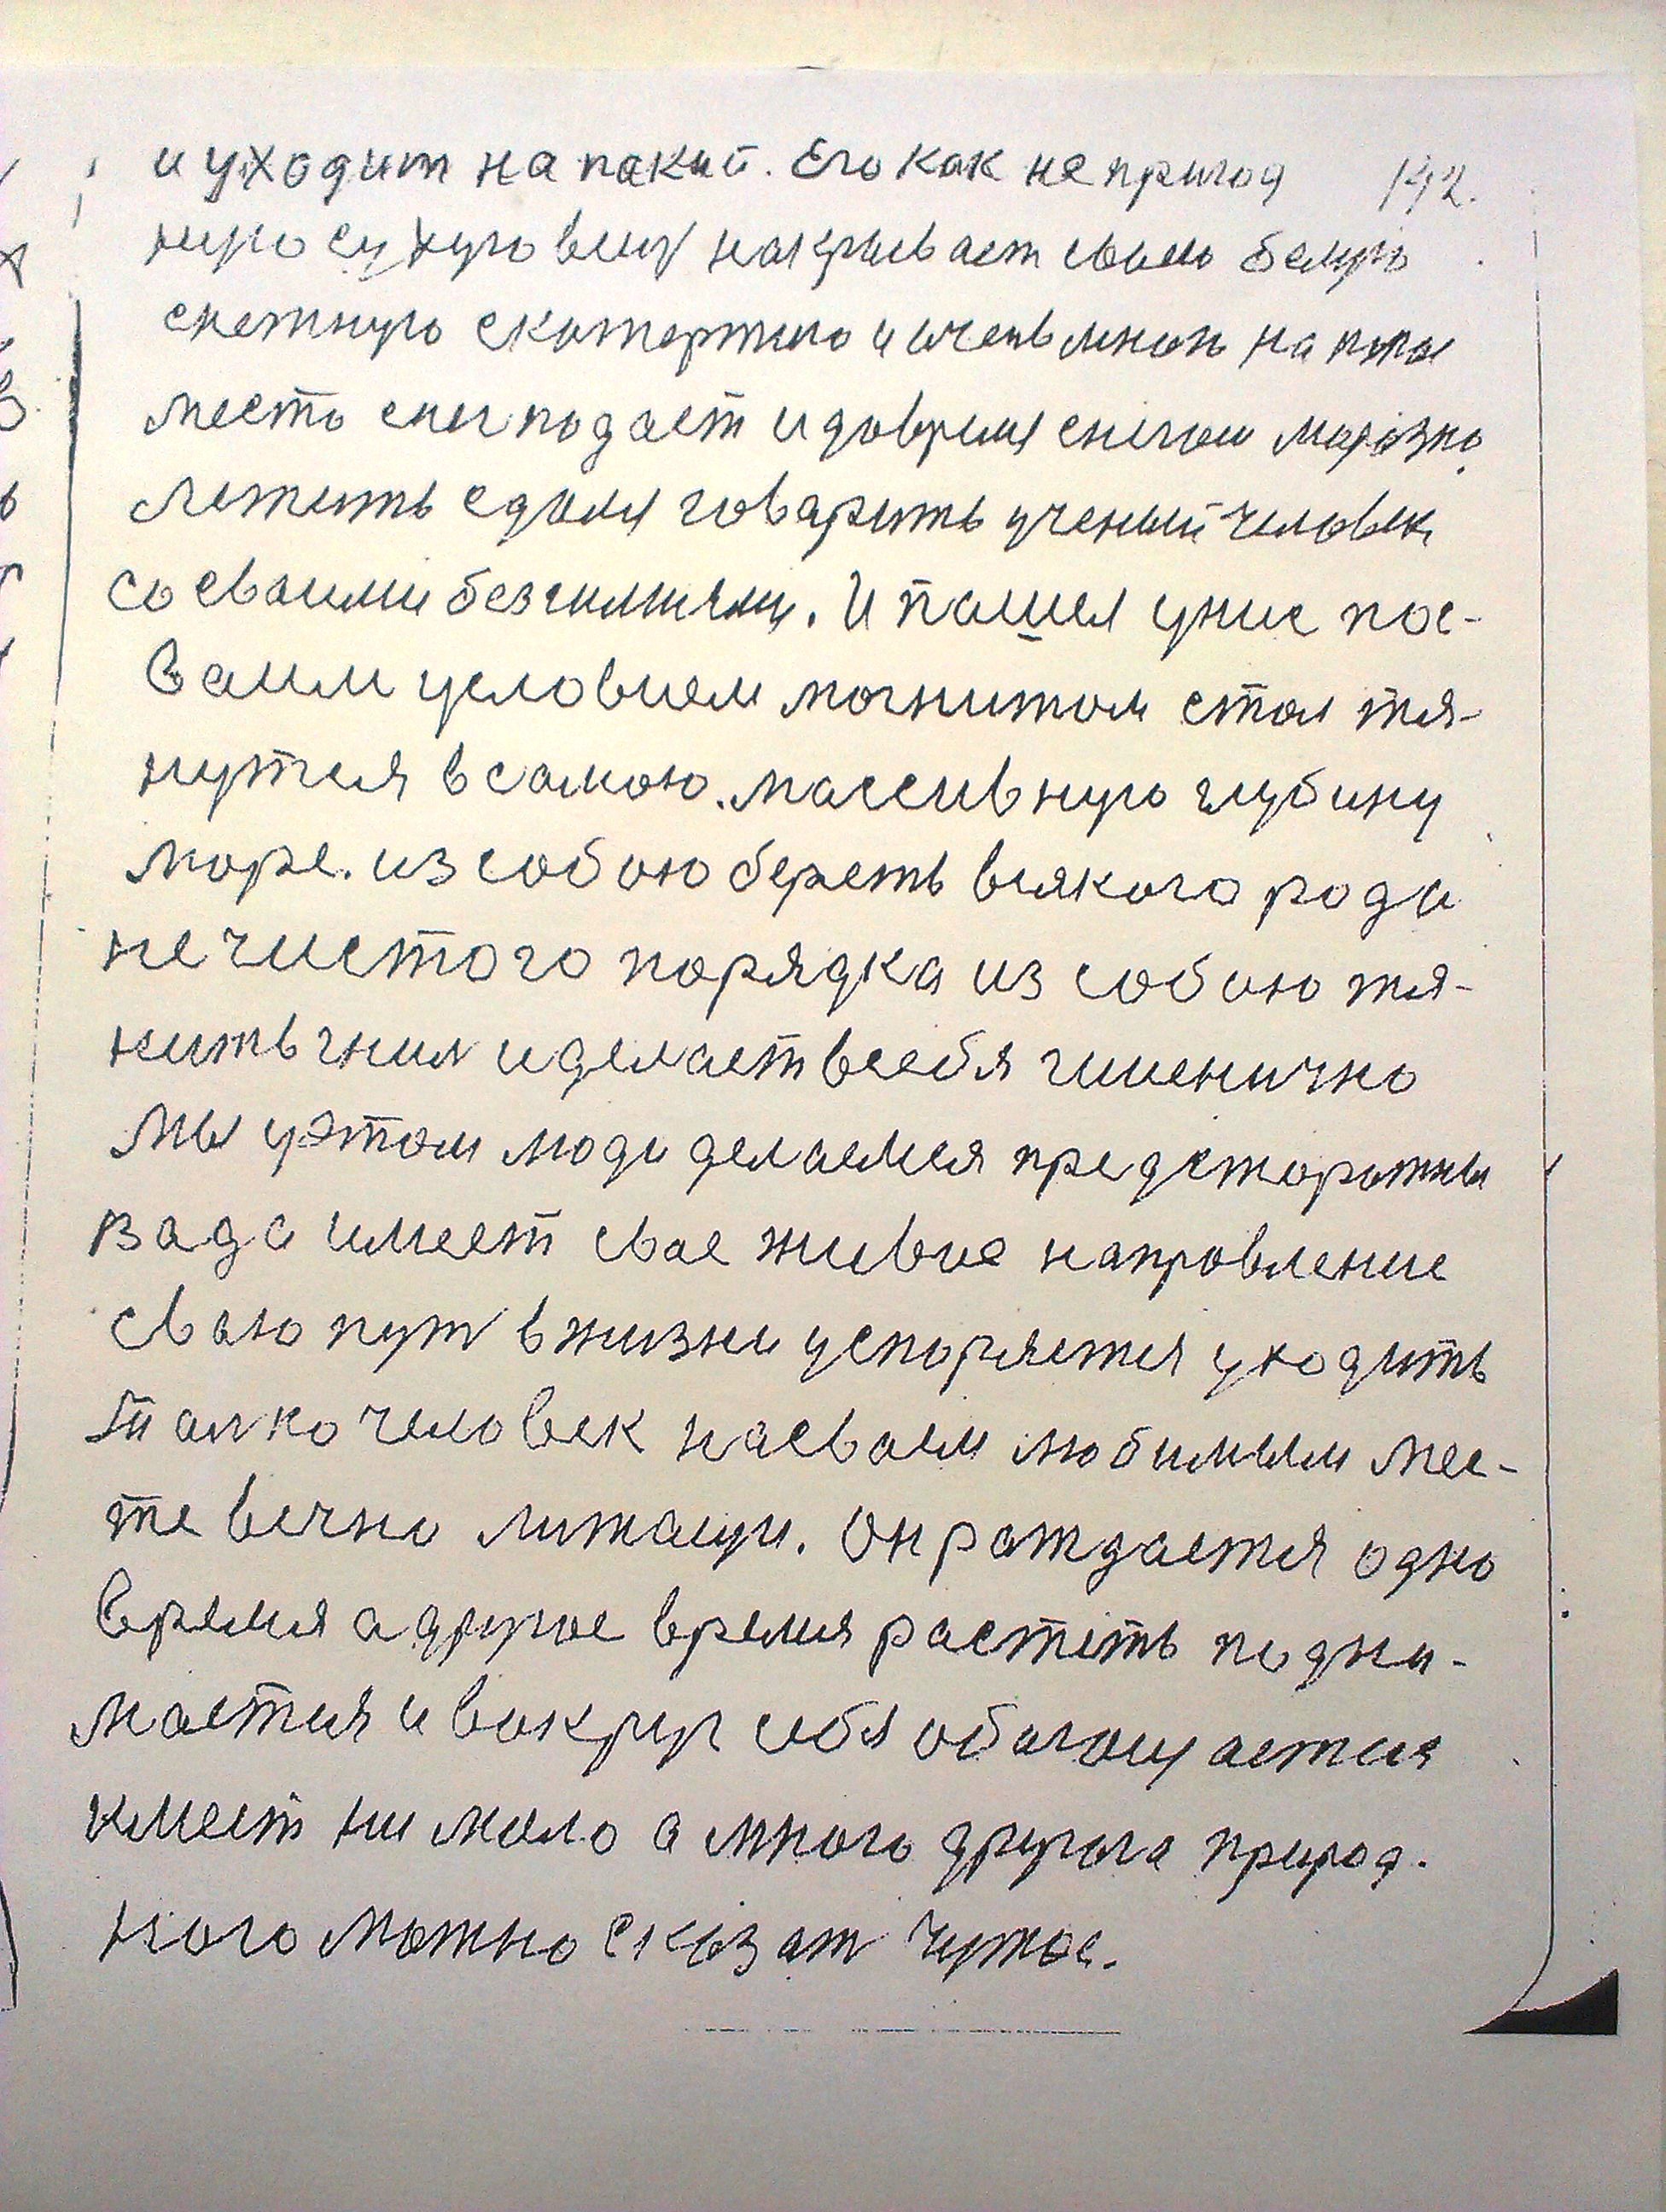 и уходит на покий. Его как не пригод 192.
ную сухую вещ накрывает своею белую
снежную скатертию и очень много на это
место снег подает и говрим снегом марозно
лежить едоми говарить ученый человек
со сваими беззнаниями. И пашел уние пос-
ваим условием могнитом стал тя-
нутся в самою массивную глубину
море. из собою береть всякого рода
не чистого порядка из собою тя-
нить гнил и делает всебя гигиенично
мы уэтом люди делаемся предсторожны
Вада имеет свае живое направление
сваю пут в жизни успоряется уходить
только человек насваем любимым мес-
те вечно лижащи. Он рождается одно
время а другое время растеть подни-
мается и вокруг себя обогощается
имеет ни мало а много другога природ.
ного можно сказат чужое.